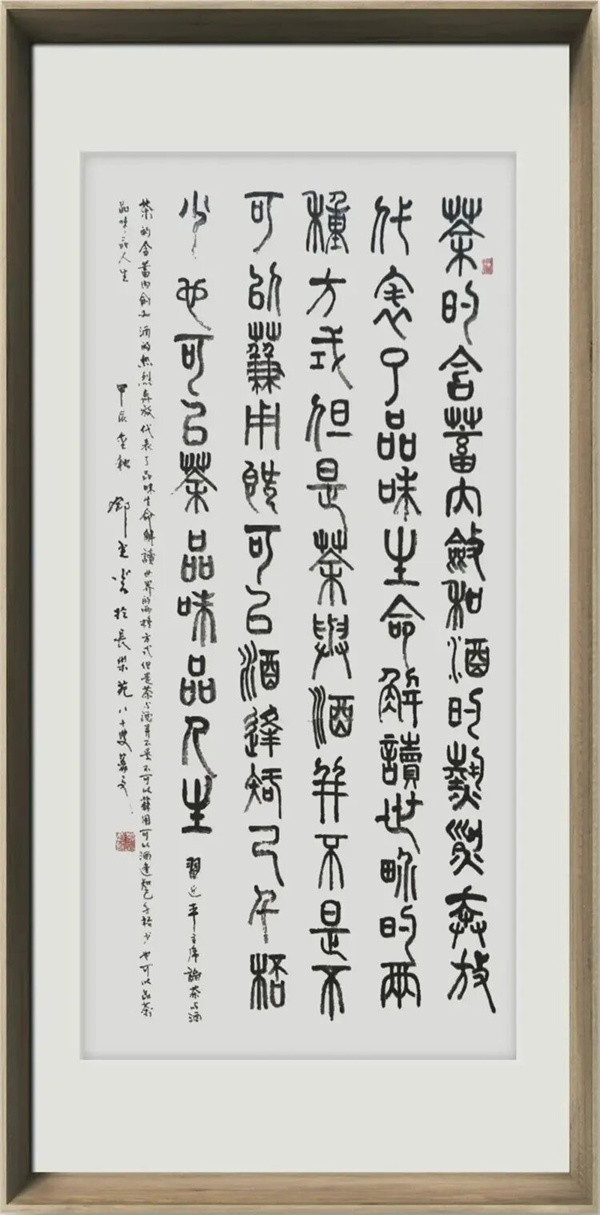 茶的含蓄内斂和酒的熱烈奔放
代表了品味生命解讀世界的兩
種方式但是茶與酒并不是不
可以兼用既可以酒逢知己千杯
少也可以茶品味品人生 習近平主席論茶与酒
茶的含蓄内斂和酒的熱烈奔放代表了品味生命解讀世界的兩種方式但是茶与酒并不是不可以兼用可以酒逢知己千杯少也可以品茶
品味品人生 甲辰金秋 鄧 於長樂苑八十雙